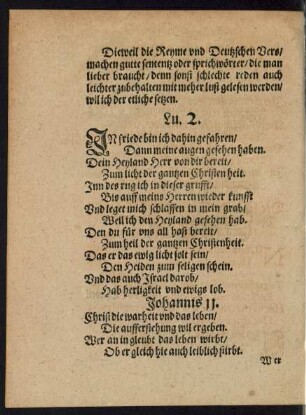 Dieweil die Reyme vnd Deutzschen Vers/
machen gutte sententz oder sprichwörter/ die man
lieber braucht/ denn sonst schlechte reden auch
leichter zubehalten mit meher lust gelesen werden/
wil ich der etliche setzen.
Lu. 2.
IN friede bin ich dahin gefahren/
Dann meine augen gesehen haben.
Dein Heyland Herr von dir bereit/
Zum licht der gantzen Christen heit.
Inn des rug ich in dieser grufft/
Bis auff meins Herren wieder kunfft
Vnd leget mich schlaffen in mein grab/
Weil ich den Heyland gesehen hab.
Den du für vns all hast bereit/
Zum heil der gantzen Christenheit.
Das er das ewig licht solt sein/
Den Heiden zum seligen schein.
Vnd das auch Israel darob/
Hab herligkeit vnd ewigs lob.
Johannis 11.
Christ die warheit vnd das leben/
Die aufferstehung wil ergeben.
Wer an in gleubt das leben wirbt/
Ob er gleich hie auch leiblich stirbt.
Wer